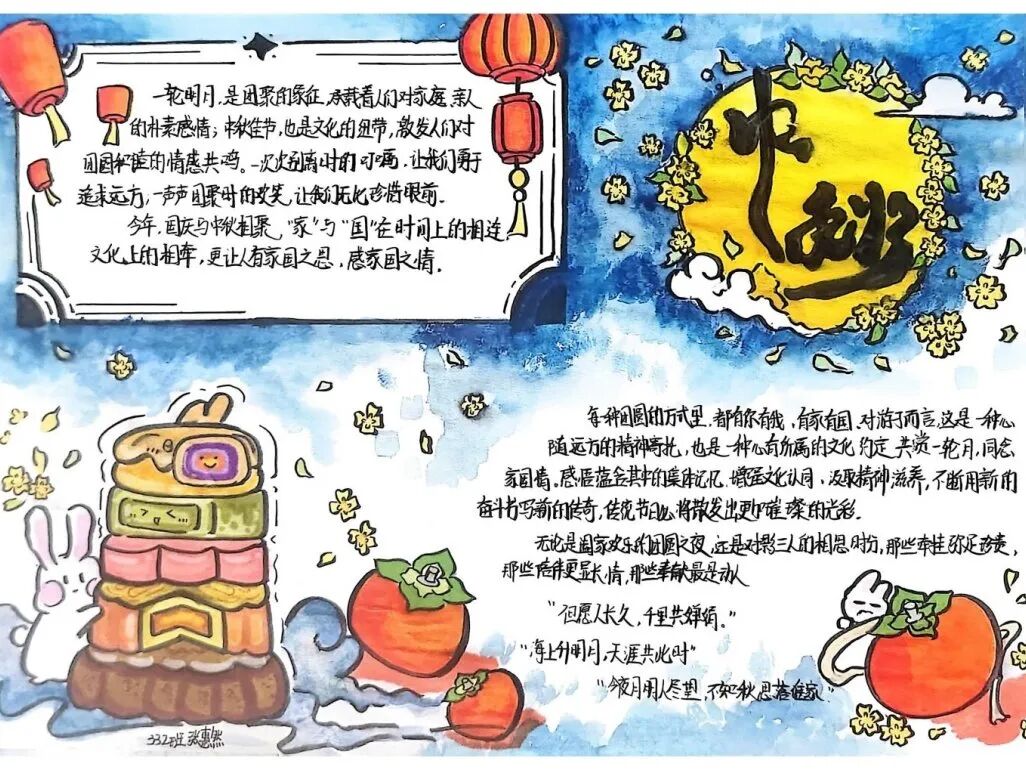 一轮明月，是团聚的象征，承载着人们对家庭、亲人
的朴素感情；中秋佳节，也是文化的纽带，激发人们对
团圆和睦的情感共鸣。一次次别离时的叮嘱，让我们勇于
追求远方，一声声团聚时的欢笑，让我们无比珍惜眼前。
今年，国庆与中秋相聚，“家”与“国”在时间上的相连，
文化上的相牵，更让人有家国之思，感家国之情。
中秋
每种团圆的方式里，都有你有我，有家有国，对游子而言，这是一种心
随远方的精神寄托，也是一种心有所属的文化约定，共赏一轮月，同念
家国情。感悟蕴含其中的集体记忆，增强文化认同，汲取精神滋养，不断用新的
奋斗书写新的传奇，传统节日必将散发出更加璀璨的光彩。
无论是国家欢乐的团圆之夜，还是对影三人的相思时分，那些牵挂弥足珍贵，
那些陪伴更显长情，那些奉献最是动人
“但愿人长久，千里共婵娟。”
“海上升明月，天涯共此时”
“今夜月明人尽望，不知秋思落谁家”
332班